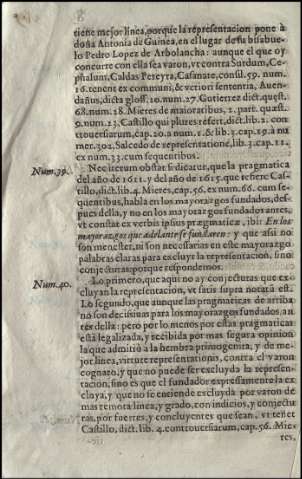 8
tiene mejor linea, porque la representacion pone à
doña Antonia de Guinea, en el lugar de su bisabue-
lo Pedro Lopez de Arbolancha: aunque el que oy
concurre con ella sea varon, vt contra Surdum, Ce-
phalum, Caldas Pereyra, Casanate, consil. 59. num.
16. tenent ex communi, & veriori sententia, Auen-
dañus, dicta gloss. 10. num. 27. Gutierrez dict. quæst.
68. num. 18. Mieres de maioratibus, 2. part. quæst.
9. num. 23. Castillo qui plures refert, dict. lib. 2. con-
trouersiarum, cap. 20. à num. 1. & lib. 3. cap. 19. à nu-
mer. 302. Salcedo de representatione, lib. 3. cap. 11.
ex num. 33. cum sequentibus.
Num. 39. Nec iterum obstat si dicatur, que la pragmatica
del año de 1611. y del año de 1615. que refiere Cas-
tillo, dict. lib. 4. Mieres, cap. 56. ex num. 66. cum se-
quentibus, habla en los mayorazgos fundados, des-
pues della, y no en los mayorazgos fundados antes,
vt constat ex verbis ipsius prægmaticæ, ibi: En los
mayorazgos que adelante se fundaren: y que assi no
son menester, ni son necessarias en este mayorazgo
palabras claras para excluyr la representacion, sino
conjecturas: porque respondemos.
Num. 40. Lo primero, que aqui no ay conjecturas que ex-
cluyan la representacion, vt satis supra notatũ est.
Lo segundo, que aunque las pragmaticas de arriba
nó son decisiuas para los mayorazgos fundados, an
tes della: pero por lo menos por estas pragmaticas
està legalizada, y recibida por mas segura opinion
la que admitiò a la hembra primogenita, y de me-
jor linea, virtute representationis, contra el varon
cognato, y que no puede ser excluyda la represen-
tacion, sino es que el fundador expressamente la ex
cluya, y que no se entiende excluyda por varon de
mas remota linea, y grado, con indicios, y conjectu
ras, por fuertes, y concluyentes que sean, vt tenet
Castillo, dict. lib. 4. controuersiarum, cap. 56. Mie-
res,